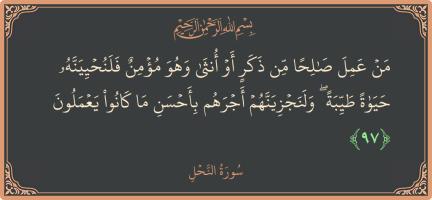 بِسْمِ اللَّهِ الرَّحْمَٰنِ الرَّحِيمِ
مَنْ عَمِلَ صَٰلِحًا مِّن ذَكَرٍ أَوْ أُنثَىٰ وَهُوَ مُؤْمِنٌ فَلَنُحْيِيَنَّهُۥ
حَيَوٰةً طَيِّبَةً ۖ وَلَنَجْزِيَنَّهُمْ أَجْرَهُم بِأَحْسَنِ مَا كَانُوا۟ يَعْمَلُونَ
﴿٩٧﴾
سُورَةُ النَّحْلِ